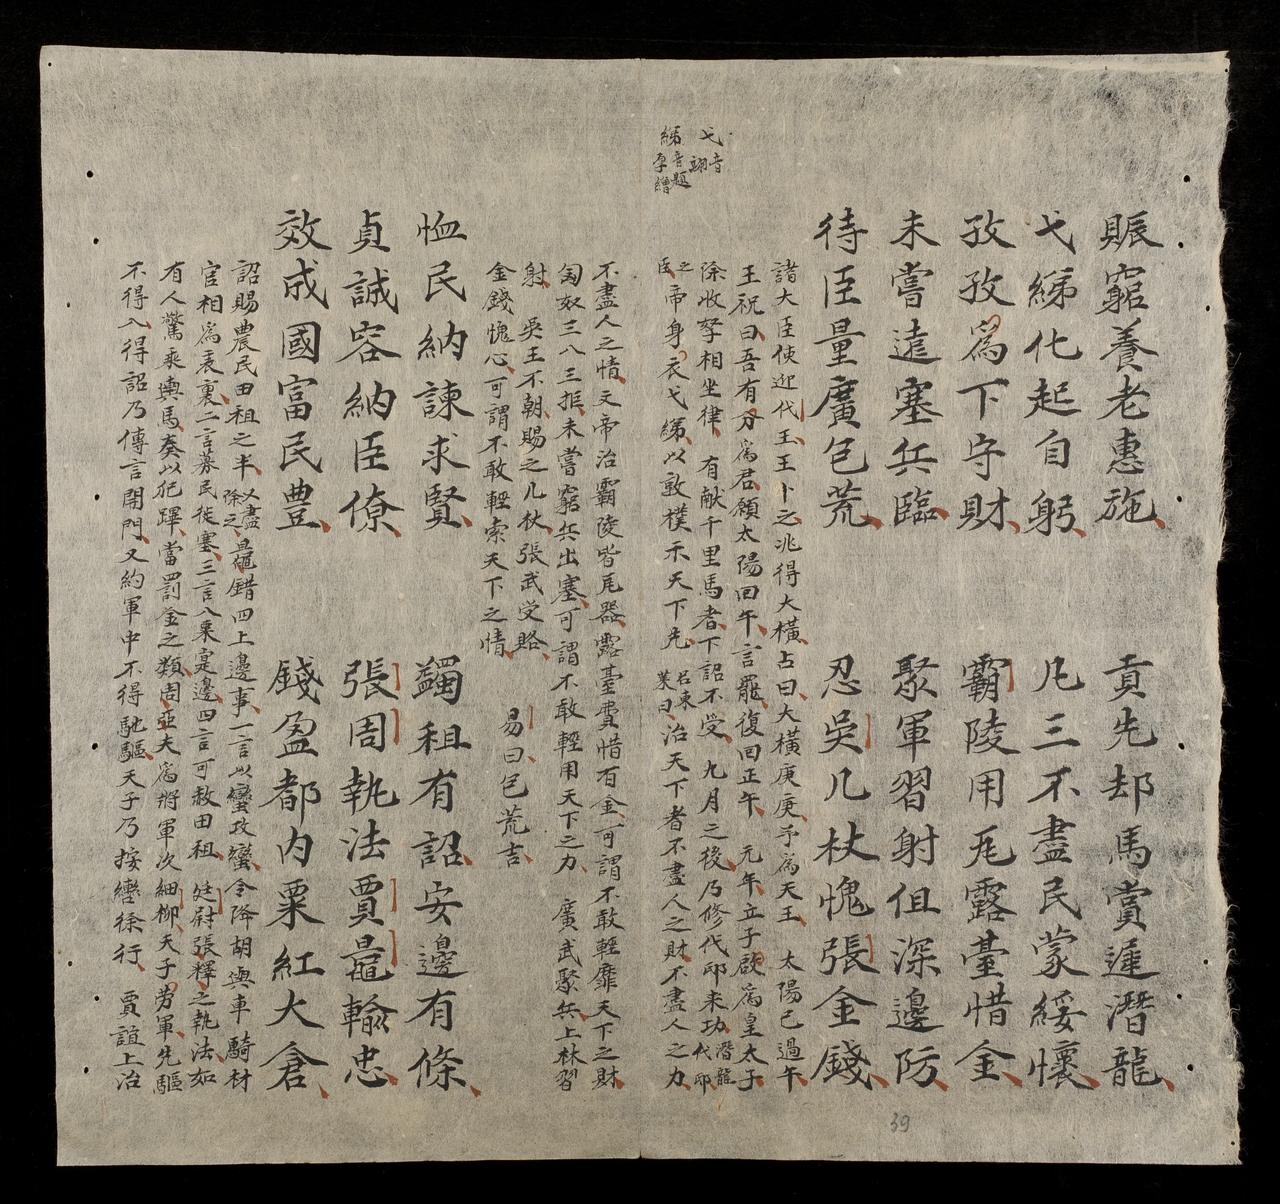 弋音翊
綈音題厚繒
賑窮養老惠施
貢先却馬賞遲潛龍
弋綈化起自躬
凡三不盡民蒙綏懷
孜孜為下守財
霸陵用瓦露臺惜金
未嘗遠塞兵臨
聚軍習射但深邊防
待臣量廣包荒
忍吳几杖愧張金錢
諸大臣使迎代王王卜之兆得大橫占曰大橫庚庚予為天王 太陽已過午
王祝曰吾有分為君願太陽回午言罷復回正午 元年立子啟為皇太子
除收孥相坐律 有献千里馬者下詔不受 九月之後乃修代邸来功潛龍代邸
之臣帝身衣弋綈以敦樸示天下先 吕東萊曰治天下者不盡人之財不盡人之力
不盡人之情文帝治霸陵皆瓦器露臺費惜百金可謂不敢輕靡天下之財
匈奴三入三拒未嘗窮兵出塞可謂不敢輕用天下之力 廣武聚兵上林習
射 吳王不朝賜之几杖張武受賂
金錢愧心可謂不敢輕索天下之情 易曰包荒吉
恤民納諫求賢
蠲租有詔安邊有條
貞誠容納臣僚
張周執法賈鼂輸忠
效成國富民豊
錢盈都内粟紅大倉
詔賜農民田租之半又盡除之鼂錯四上邊事一言以蠻攻蠻令降胡與車騎材
官相為表裏二言募民徙塞三言入粟寔邊四言可赦田租 廷尉張釋之執法如
有人驚乘輿馬奏以犯蹕當罰金之類周亞夫為將軍次細柳天子劳軍先驅
不得入得詔乃傳言開門又約軍中不得馳驅天子乃按轡徐行 賈誼上治
39